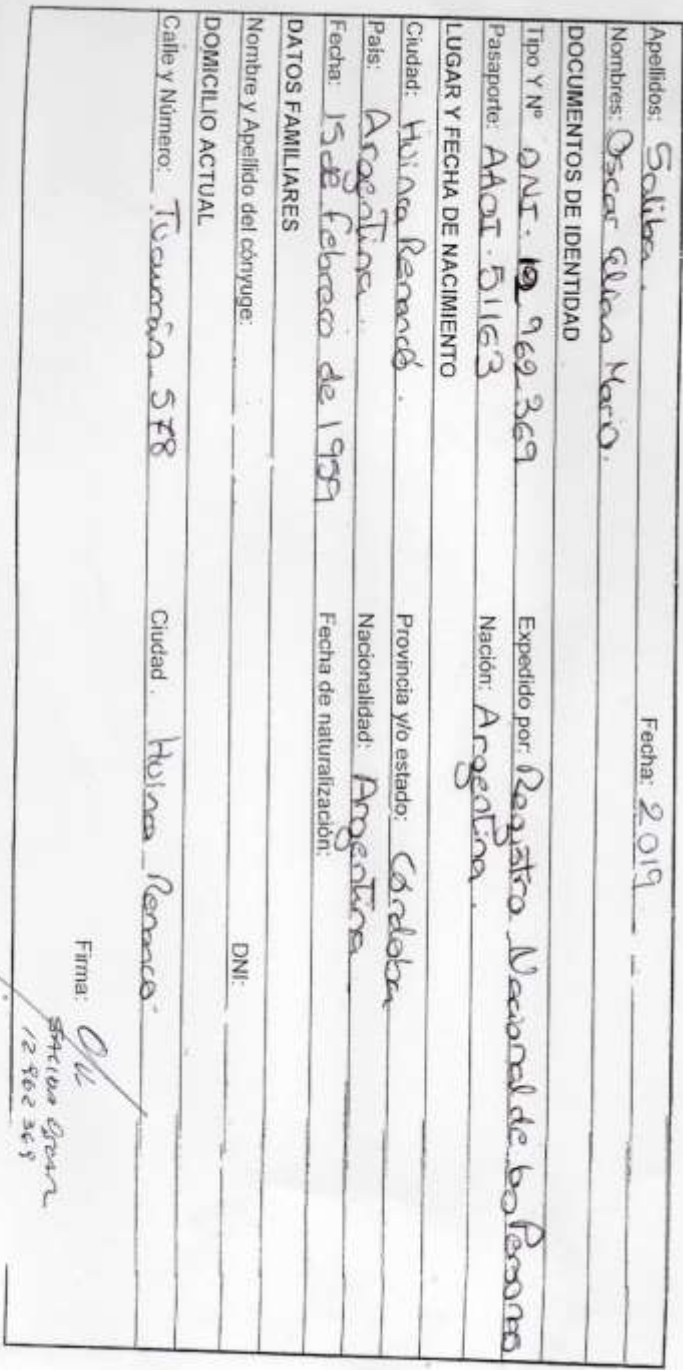 Apellidos: Saliba. Fecha: 2019
Nombres: Oscar Elías Mario.
DOCUMENTOS DE IDENTIDAD
Tipo Y Nº DNI. 12 962 369 Expedido por: Registro Nacional de las Personas
Pasaporte: AAOI. 51163 Nación: Argentina.
LUGAR Y FECHA DE NACIMIENTO
Ciudad: Huinca Renancó. Provincia y/o estado: Córdoba
País: Argentina. Nacionalidad: Argentina
Fecha: 15 de febrero de 1959 Fecha de naturalización:
DATOS FAMILIARES
Nombre y Apellido del cónyuge: DNI:
DOMICILIO ACTUAL
Calle y Número: Tucumán 578 Ciudad. Huinca Renancó.
Firma:
12 962 369